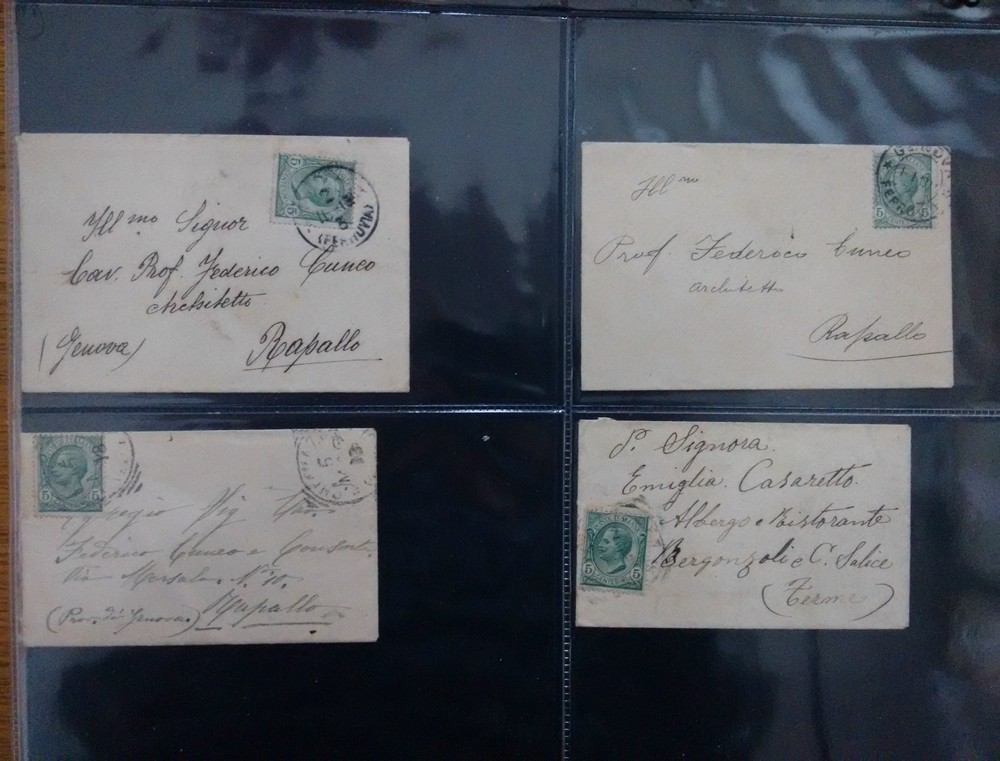 Ill.mo Signor
Cav. Prof. Federico Cuneo
Architetto
(Genova) Rapallo
5 5
(FERROVIA)
Ill.mo
Prof. Federoco Cuneo
architetto
Rapallo
GENOVA
FERRO
5 5
Egregio Sig.
Federico Cuneo e Consorte
Via Marsala N. 10.
(Prov. di Genova.) Rapallo
5 5
P. Signora
Emiglia Casaretto
Albergo e Ristorante
Bergonzoli e C. Salice
(Terme)
5 5